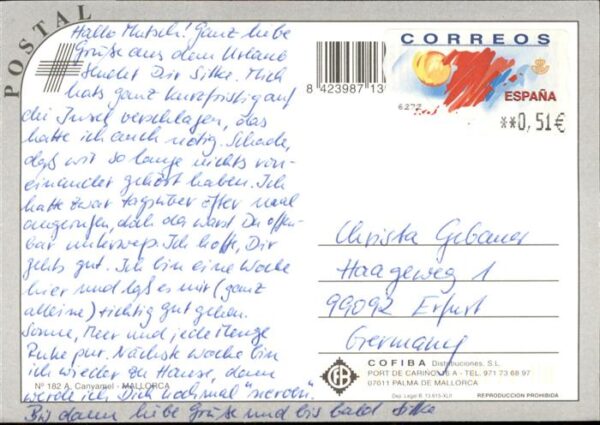 POSTAL
Hallo Mutsch! Ganz liebe
Grüße aus dem Urlaub
sendet Dir Silke. Mich
hats ganz kurzfristig auf
die Insel verschlagen, das
hatte ich auch nötig. Schade,
daß wir so lange nichts von-
einander gehört haben. Ich
hatte zwar tagsüber öfter mal
angerufen, doch da warst Du offen-
bar unterwegs. Ich hoffe, Dir
gehts gut. Ich bin eine Woche
hier und laß es mir (ganz
alleine) richtig gut gehen.
Sonne, Meer und jede Menge
Ruhe pur. Nächste Woche bin
ich wieder zu Hause, dann
werde ich Dich nochmal "nerven".
Bis dann liebe Grüße und bis bald Silke
Nº 182 A. Canyamel - MALLORCA
8 423987 13
CORREOS
ESPAÑA
6277
**0,51€
Christa Gebauer
Haageweg 1
99092 Erfurt
Germany
COFIBA Distribuciones, S.L.
PORT DE CARIÑO, 16 A - TEL. 971 73 68 97
07011 PALMA DE MALLORCA
REPRODUCCIÓN PROHIBIDA